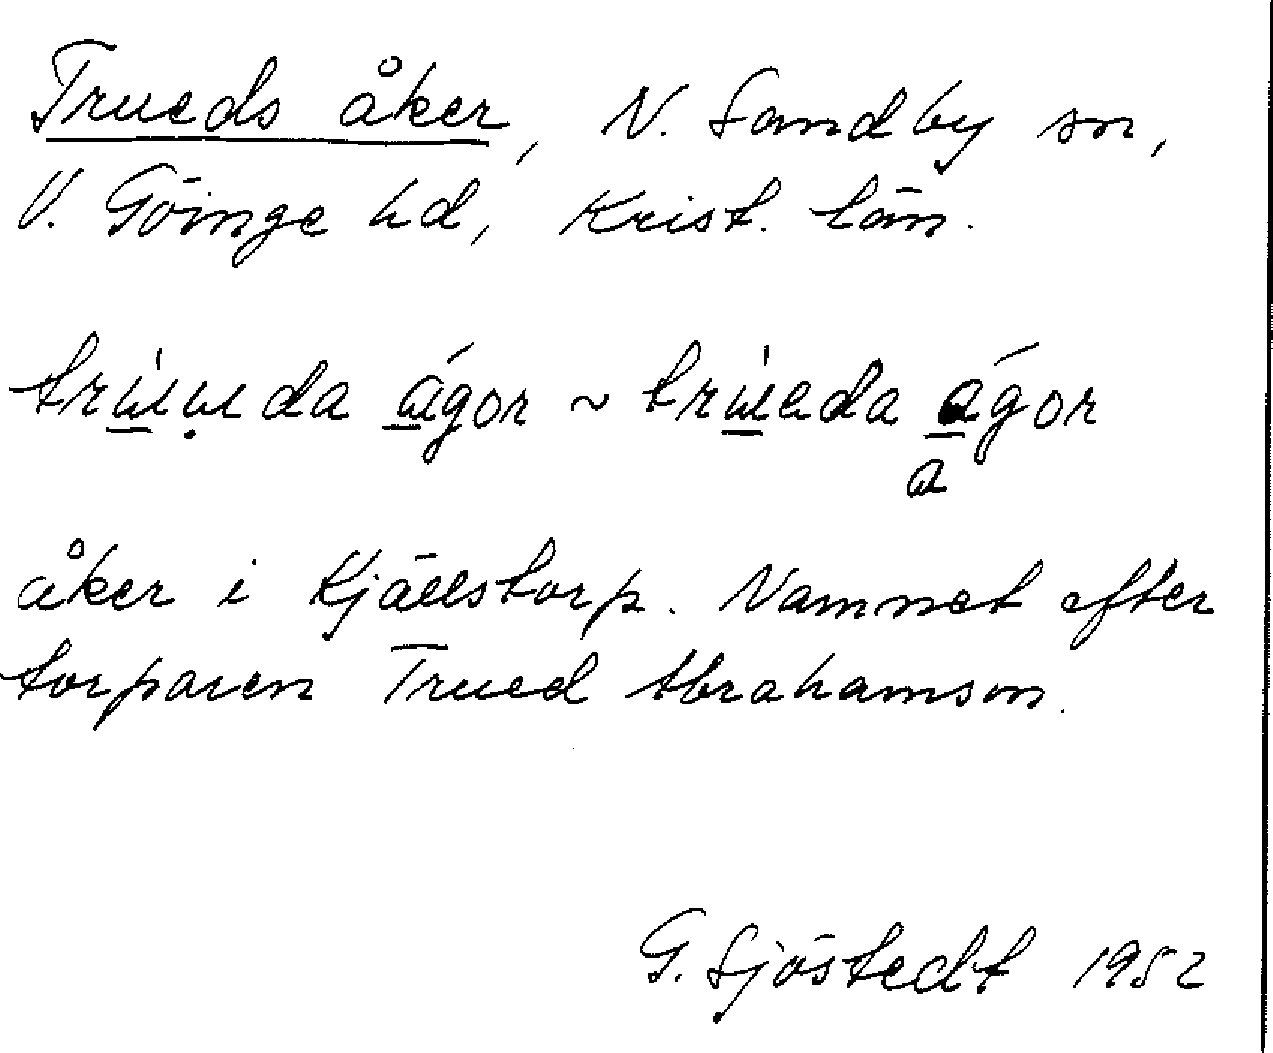 Trueds åker, N. Sandby sn,
V. Göinge hd, Krist. län.
trɯ́ɯ̣da ágor ~ trɯ́eda ágor
a
åker i Kjällstorp. Namnet efter
torparen Trued Abrahamson.
G. Sjöstedt 1952